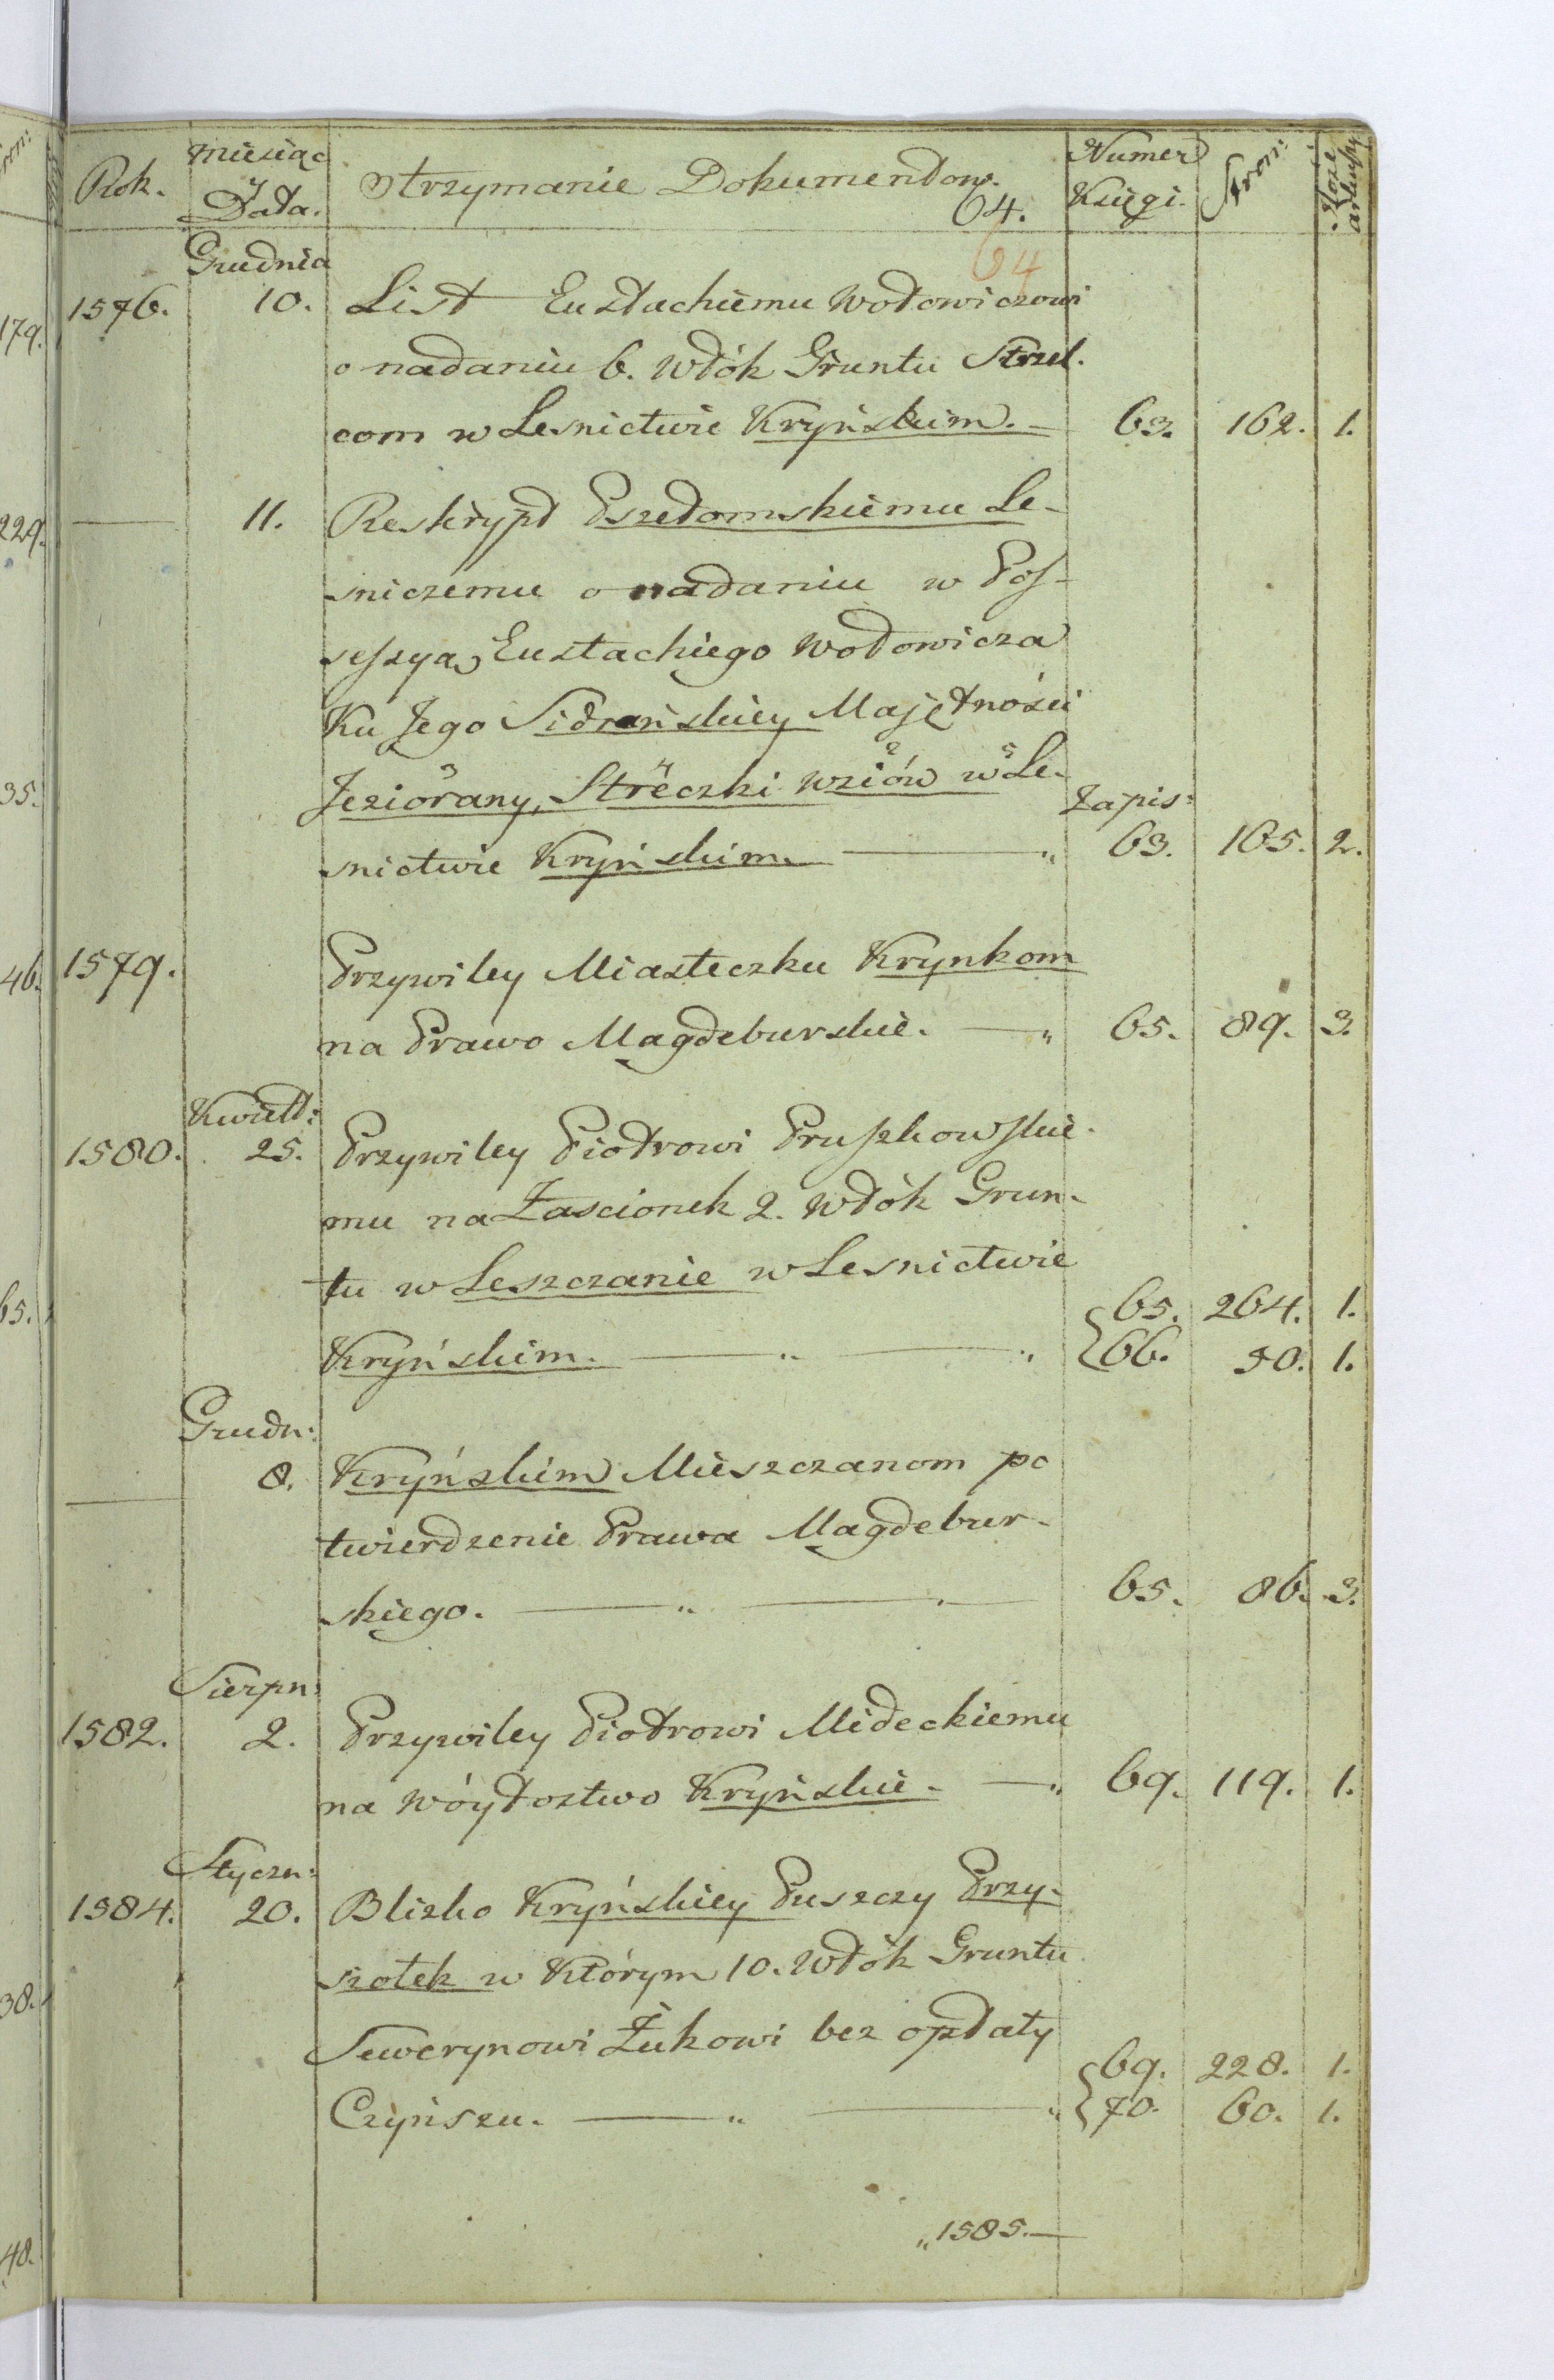 Rok. Miesiąc Data. Otrzymanie Dokumentow. Numer Księgi. Stron:
64.
64
Grudnia
1576. 10. List Eustachiemu Wołowiczowi
o nadaniu 6. Włók Gruntu Strzel-
com w Lesnictwie Kryńskim. 63. 162. 1.
11. Reskrypt Pszełomskiemu Le-
sniczemu o nadaniu w Pos-
sessyą Eustachiego Wołowicza
Ku Jego Sidrańskiey Majętności
Jeziorany, Streczki wziów w Le-
Zapis:
snictwie Kryńskim. 63. 165. 2.
1579. Przywiley Miasteczku Krynkom
na Prawo Magdeburskie. 65. 89. 3.
Kwiet:
1580. 25. Przywiley Piotrowi Pruszkowskie-
mu na Zascionek 2. Włók Grun-
tu w Leszczanie w Lesnictwie
65. 264. 1.
Kryńskim. 66. 50. 1.
Grudn:
8. Kryńskim Mieszczanom po
twierdzenie Prawa Magdebur-
skiego. 65. 86. 3.
Sierpn:
1582. 2. Przywiley Piotrowi Mideckiemu
na Wóytostwo Kryńskie. 69. 119. 1.
Styczn:
1584. 20. Blizko Kryńskiey Puszczy Przy-
stołek w Którym 10. Włók Gruntu
Sewerynowi Żukowi bez opłaty
69. 228. 1.
Czyńszu. 70. 60. 1.
„1585.—
179.
229.
35.
46.
65.
38.
48.